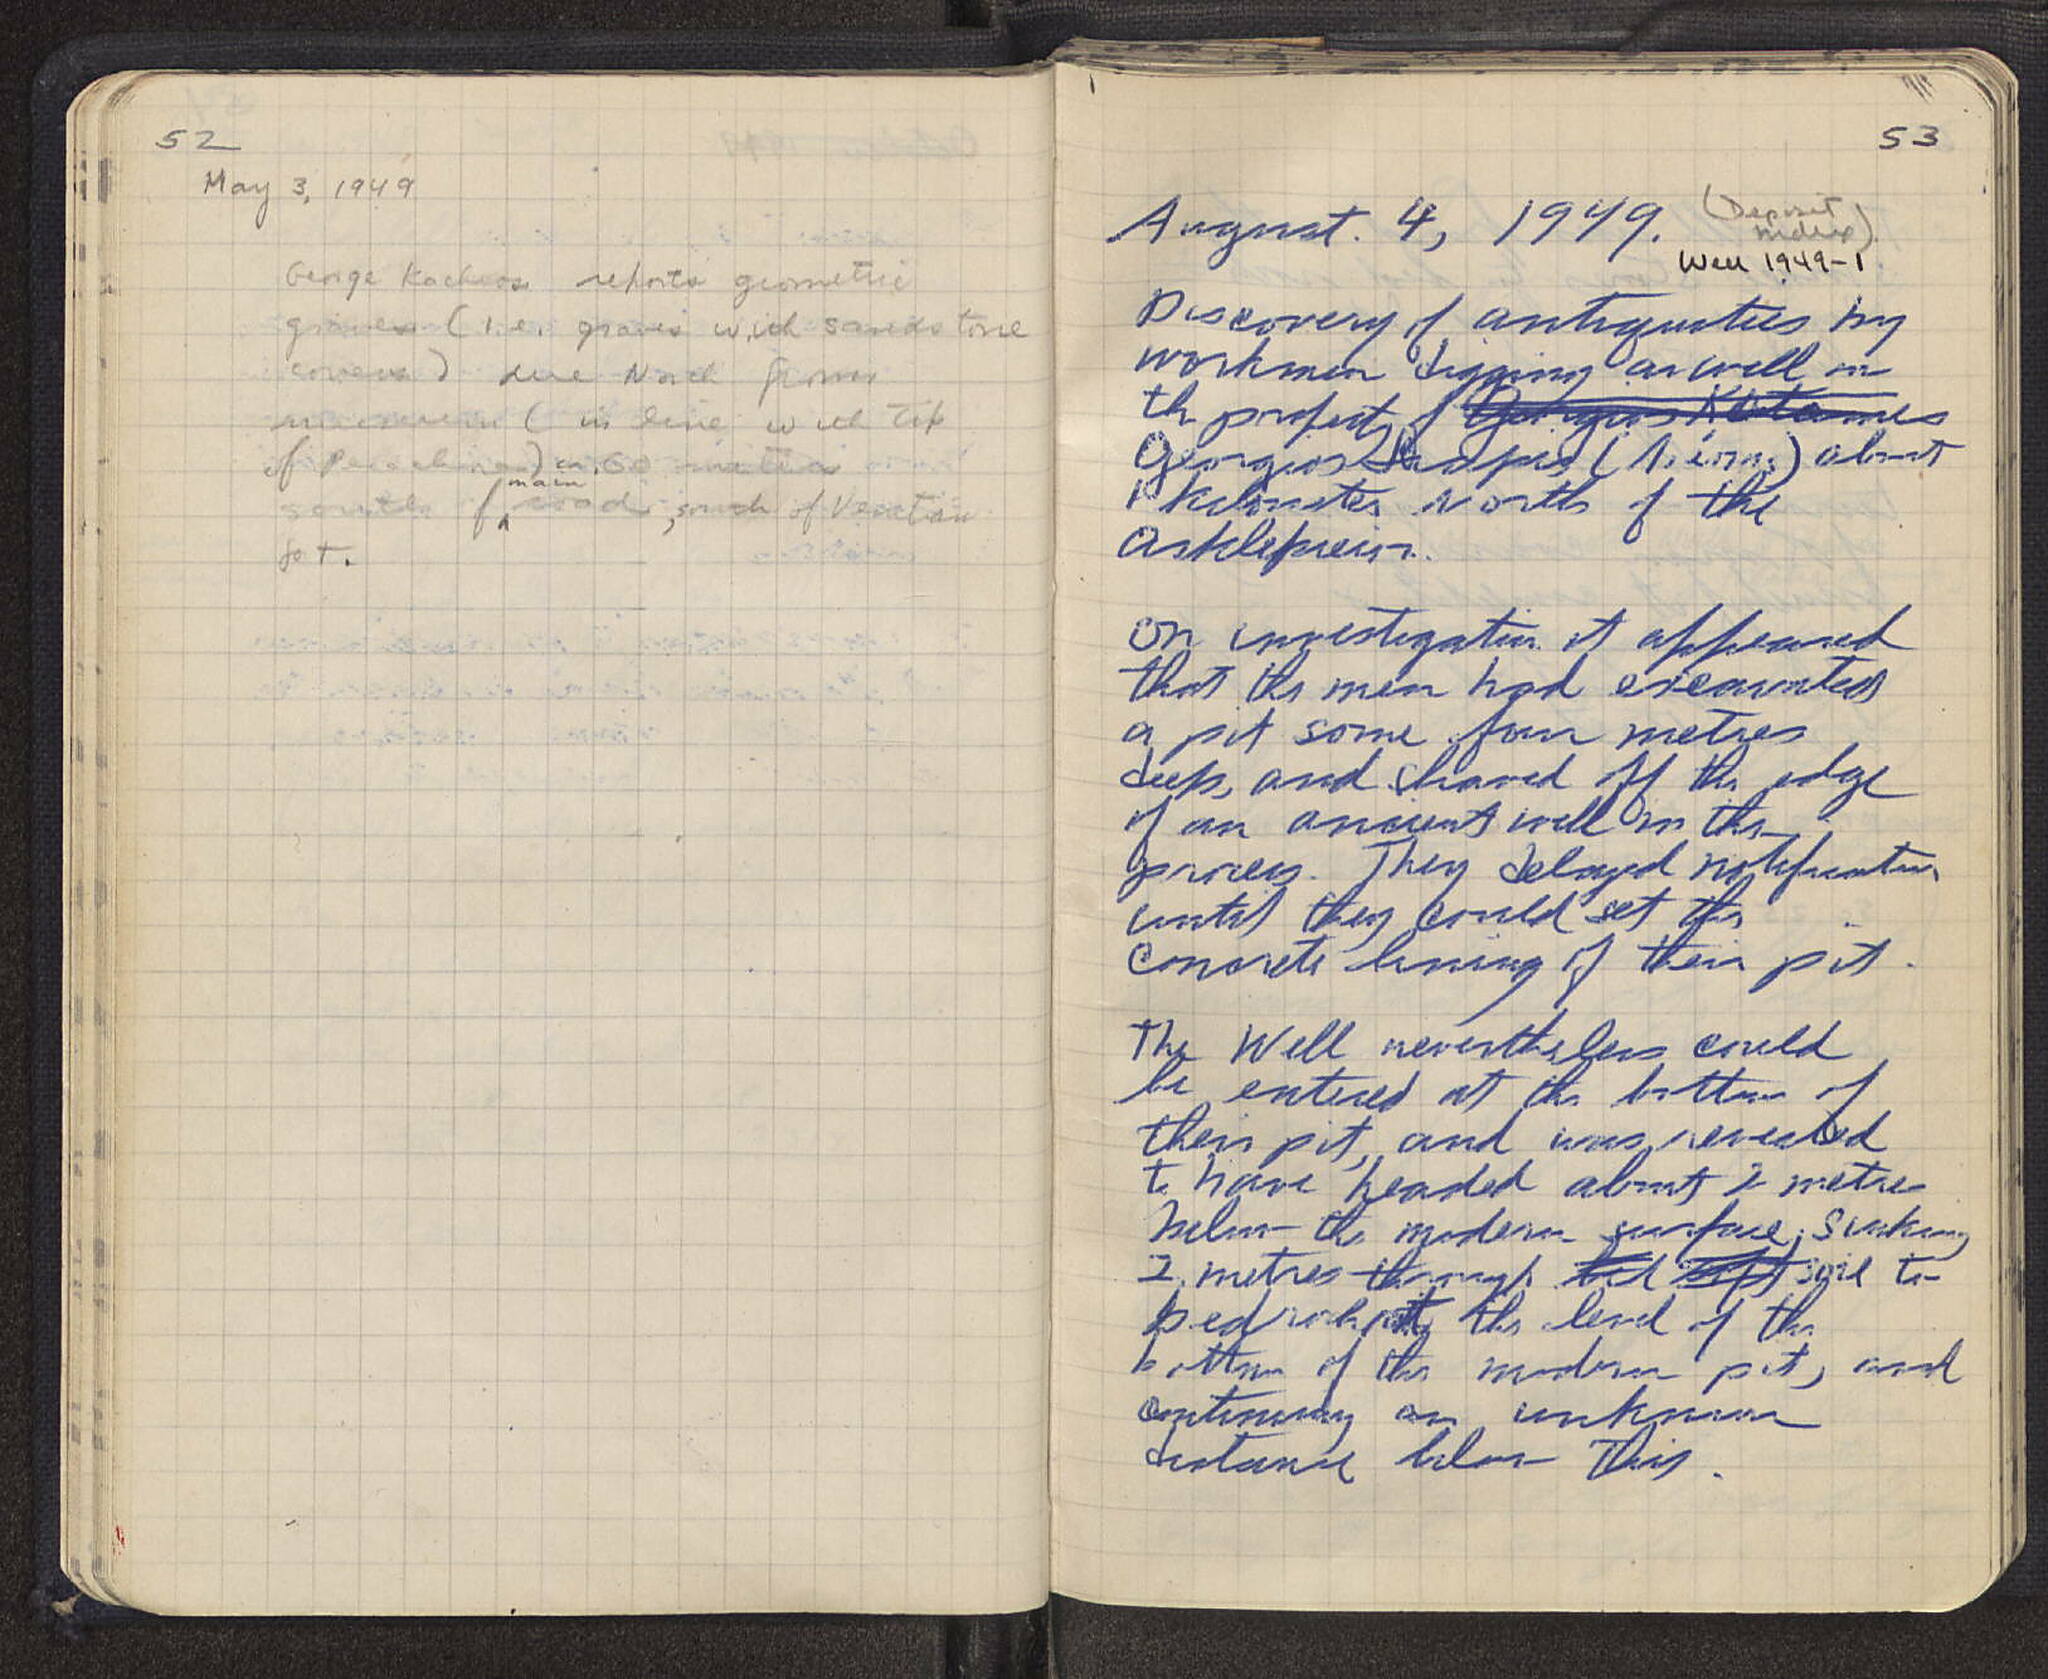 52
May 3, 1949
George Kachros reports geometric
graves (i.e. graves with sandstone
covers) due North from
museum (in line with tip
of Perachora) ca. 60 metres
south of main road, south of Venetian
fort.
53
August. 4, 1949.
(Deposit
index)
Well 1949-1
Discovery of antiquities by
workmen digging a well on
the property of Georgios
Georgios about
1 kilometer North of the
Asklepieion.
On investigation it appeared
that the men had excavated
a pit some four metres
deep, and shaved off the edge
of an ancient well in the
process. They delayed notification
until they could set the
concrete lining of their pit.
The Well nevertheless could
be entered at the bottom of
their pit, and was revealed
to have headed about 2 metres
below the modern surface, sinking
2 metres through bed soil to
bedrock at the level of the
bottom of the modern pit, and
continuing an unknown
distance below this.